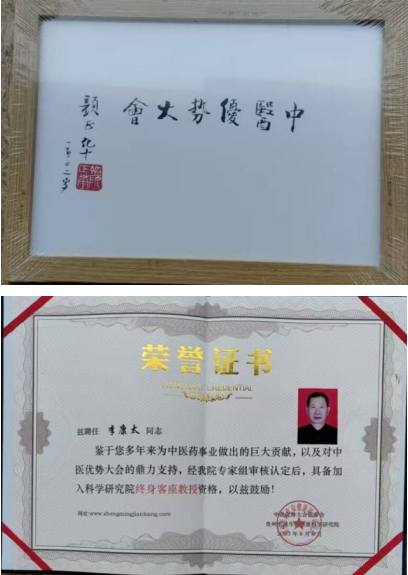 中醫優势大會
颜正华
一百〇二岁
荣誉证书
兹聘任 李康太 同志
鉴于您多年来为中医药事业做出的巨大贡献，以及对中
医优势大会的鼎力支持，经我院专家组审核认定后，具备加
入科学研究院终身客座教授资格，以兹鼓励！